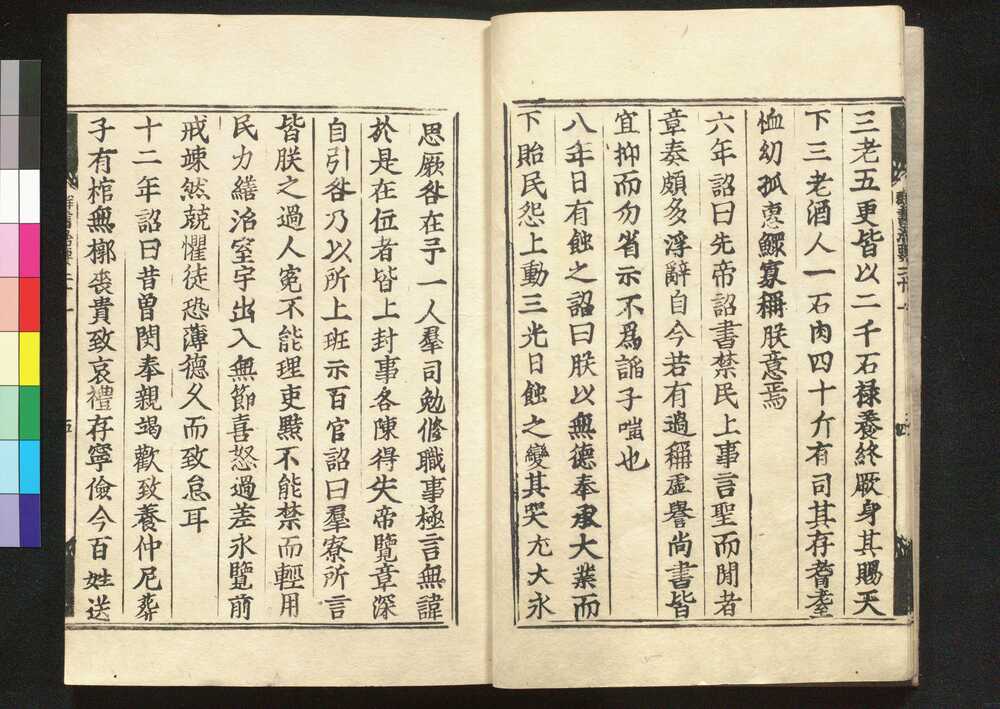 三老五更皆以二千石祿養終厥身其賜天
下三老酒人一石肉四十斤有司其存耆耋
恤幼孤惠鰥寡稱朕意焉
六年詔曰先帝詔書禁民上事言聖而閒者
章奏頗多浮辭自今若有過稱虛譽尚書皆
宜抑而勿省示不爲諂子嗤也
八年日有蝕之詔曰朕以無德奉承大業而
下貽民怨上動三光日蝕之變其灾尤大永
思厥咎在予一人羣司勉修職事極言無諱
於是在位者皆上封事各陳得失帝覽章深
自引咎乃以所上班示百官詔曰羣寮所言
皆朕之過人寃不能理吏黠不能禁而輕用
民力繕治室宇出入無節喜怒過差永覽前
戒竦然兢懼徒恐薄德久而致怠耳
十二年詔曰昔曾閔奉親竭歡致養仲尼葬
子有棺無槨喪貴致哀禮存寧儉今百姓送
群書治要二十一
四
五